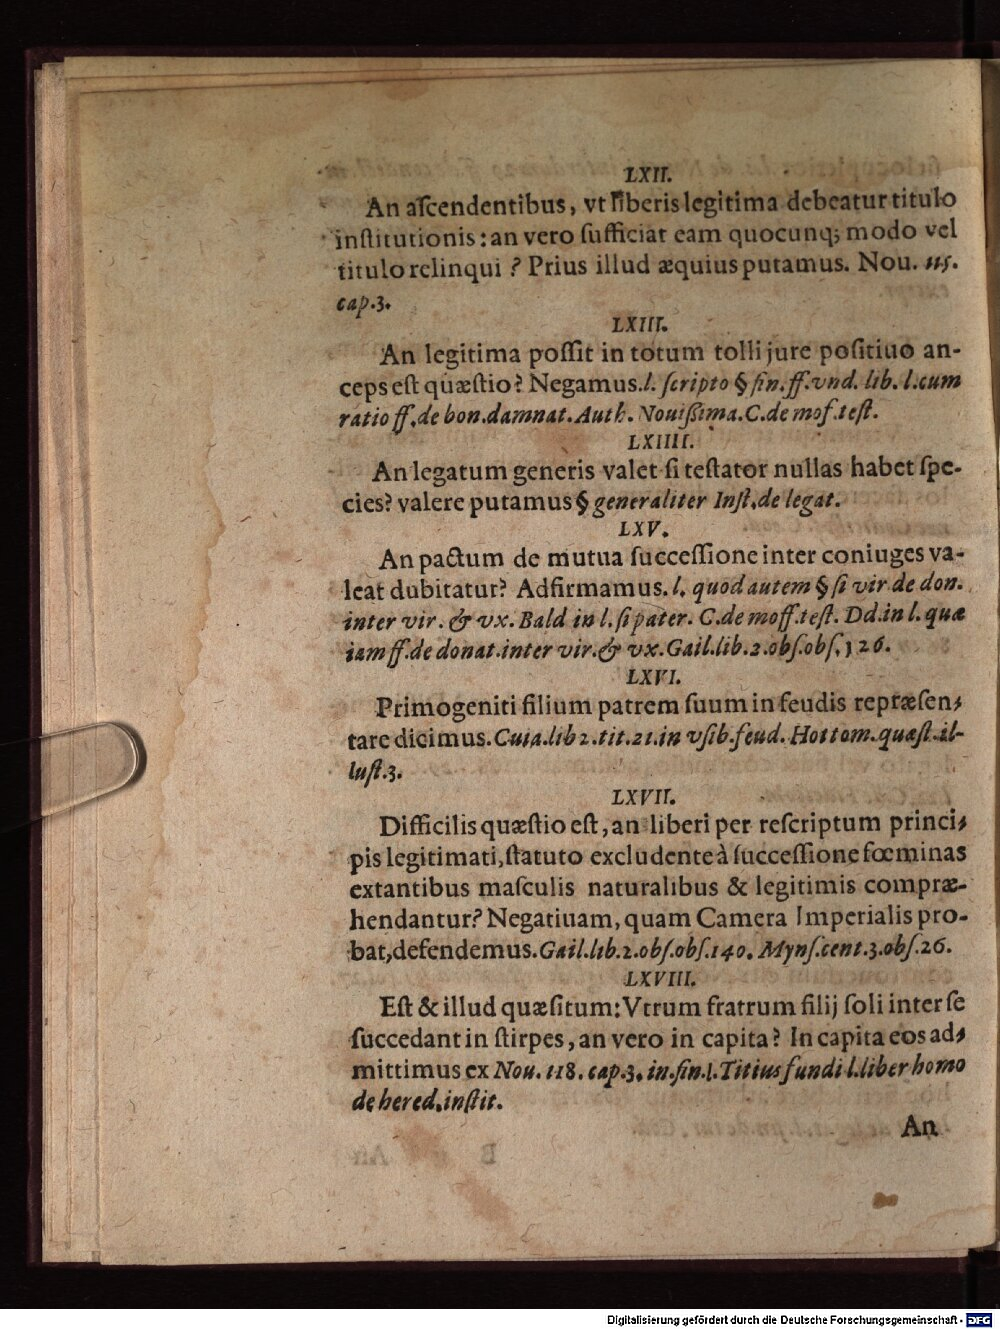 LXII.
An aſcendentibus, vt liberis legitima debeatur titulo
inſtitutionis: an vero ſufficiat eam quocunq; modo vel
titulo relinqui? Prius illud æquius putamus. Nou. 115.
cap.3.
LXIII.
An legitima poſſit in totum tolli jure poſitiuo an-
ceps eſt quæſtio? Negamus. l. ſcripto § fin. ff. vnd. lib. l. cum
ratio ff. de bon. damnat. Auth. Nouiſſima. C. de mof. teſt.
LXIIII.
An legatum generis valet ſi teſtator nullas habet ſpe-
cies? valere putamus § generaliter Inſt. de legat.
LXV.
An pactum de mutua ſucceſſione inter coniuges va-
leat dubitatur? Adfirmamus. l. quod autem § ſi vir de don.
inter vir. & vx. Bald in l. ſi pater. C. de moff. teſt. Dd. in l. quæ
iam ff. de donat. inter vir. & vx. Gail. lib. 2. obſ. obſ. 126.
LXVI.
Primogeniti filium patrem ſuum in feudis repræſen-
tare dicimus. Cuia. lib 2. tit. 21. in vſib. feud. Hottom. quæſt. il-
luſt. 3.
LXVII.
Difficilis quæſtio eſt, an liberi per reſcriptum princi-
pis legitimati, ſtatuto excludente à ſucceſſione fœminas
extantibus maſculis naturalibus & legitimis compræ-
hendantur? Negatiuam, quam Camera Imperialis pro-
bat, defendemus. Gail. lib. 2. obſ. obſ. 140. Mynſ. cent. 3. obſ. 26.
LXVIII.
Eſt & illud quæſitum: Vtrum fratrum filij ſoli inter ſe
ſuccedant in ſtirpes, an vero in capita? In capita eos ad-
mittimus ex Nou. 118. cap. 3. in. fin. l. Titius fundi l. liber homo
de hered. inſtit.
An
Digitalisierung gefördert durch die Deutsche Forschungsgemeinschaft - DFG